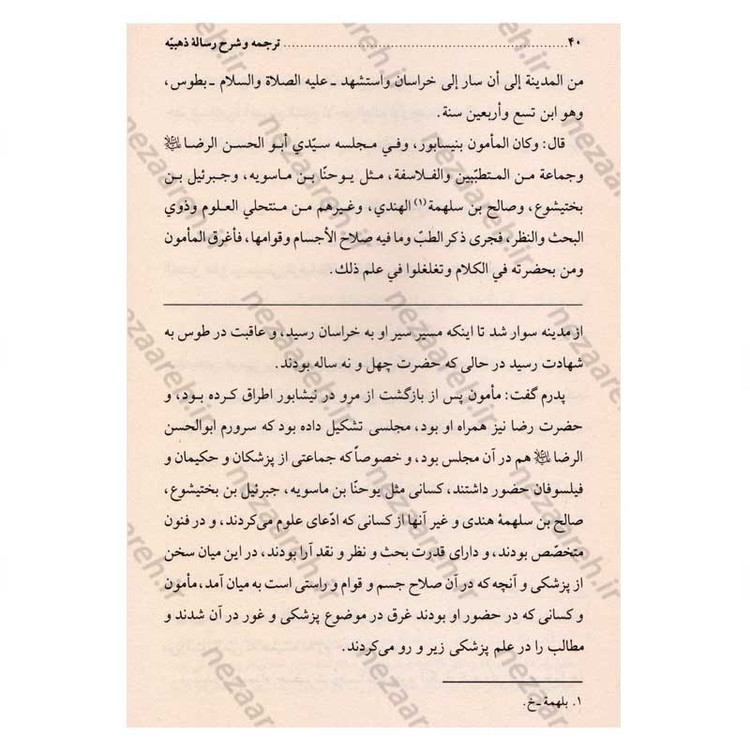 ۴۰ ........ ترجمه و شرح رسالهٔ ذهبیّه
من المدينة إلى أن سار إلى خراسان واستشهد ـ عليه الصلاة والسلام ـ بطوس،
وهو ابن تسع وأربعين سنة.
قال: وكان المأمون بنيسابور، وفي مجلسه سيّدي أبو الحسن الرضا ﷵ
وجماعة من المتطبّبين والفلاسفة، مثل يوحنّا بن ماسويه، وجبرئيل بن
بختيشوع، وصالح بن سلهمة(١) الهندي، وغيرهم من منتحلي العلوم وذوي
البحث والنظر، فجرى ذكر الطبّ وما فيه صلاح الأجسام وقوامها، فأغرق المأمون
ومن بحضرته في الكلام وتغلغلوا في علم ذلك.
از مدینه سوار شد تا اینکه مسیر سیر او به خراسان رسید، و عاقبت در طوس به
شهادت رسید در حالی که حضرت چهل و نه ساله بودند.
پدرم گفت: مأمون پس از بازگشت از مرو در نیشابور اطراق کرده بود، و
حضرت رضا نیز همراه او بود، مجلسی تشکیل داده بود که سرورم ابوالحسن
الرضا ﷵ هم در آن مجلس بود، و خصوصاً که جماعتی از پزشکان و حکیمان و
فیلسوفان حضور داشتند، کسانی مثل یوحنّا بن ماسویه، جبرئیل بن بختیشوع،
صالح بن سلهمهٔ هندی و غیر آنها از کسانی که ادّعای علوم می‌کردند، و در فنون
متخصّص بودند، و دارای قدرت بحث و نظر و نقد آرا بودند، در این میان سخن
از پزشکی و آنچه که در آن صلاح جسم و قوام و راستی است به میان آمد، مأمون
و کسانی که در حضور او بودند غرق در موضوع پزشکی و غور در آن شدند و
مطالب را در علم پزشکی زیر و رو می‌کردند.
١. بلهمة ـ خ.
nezaareh.ir